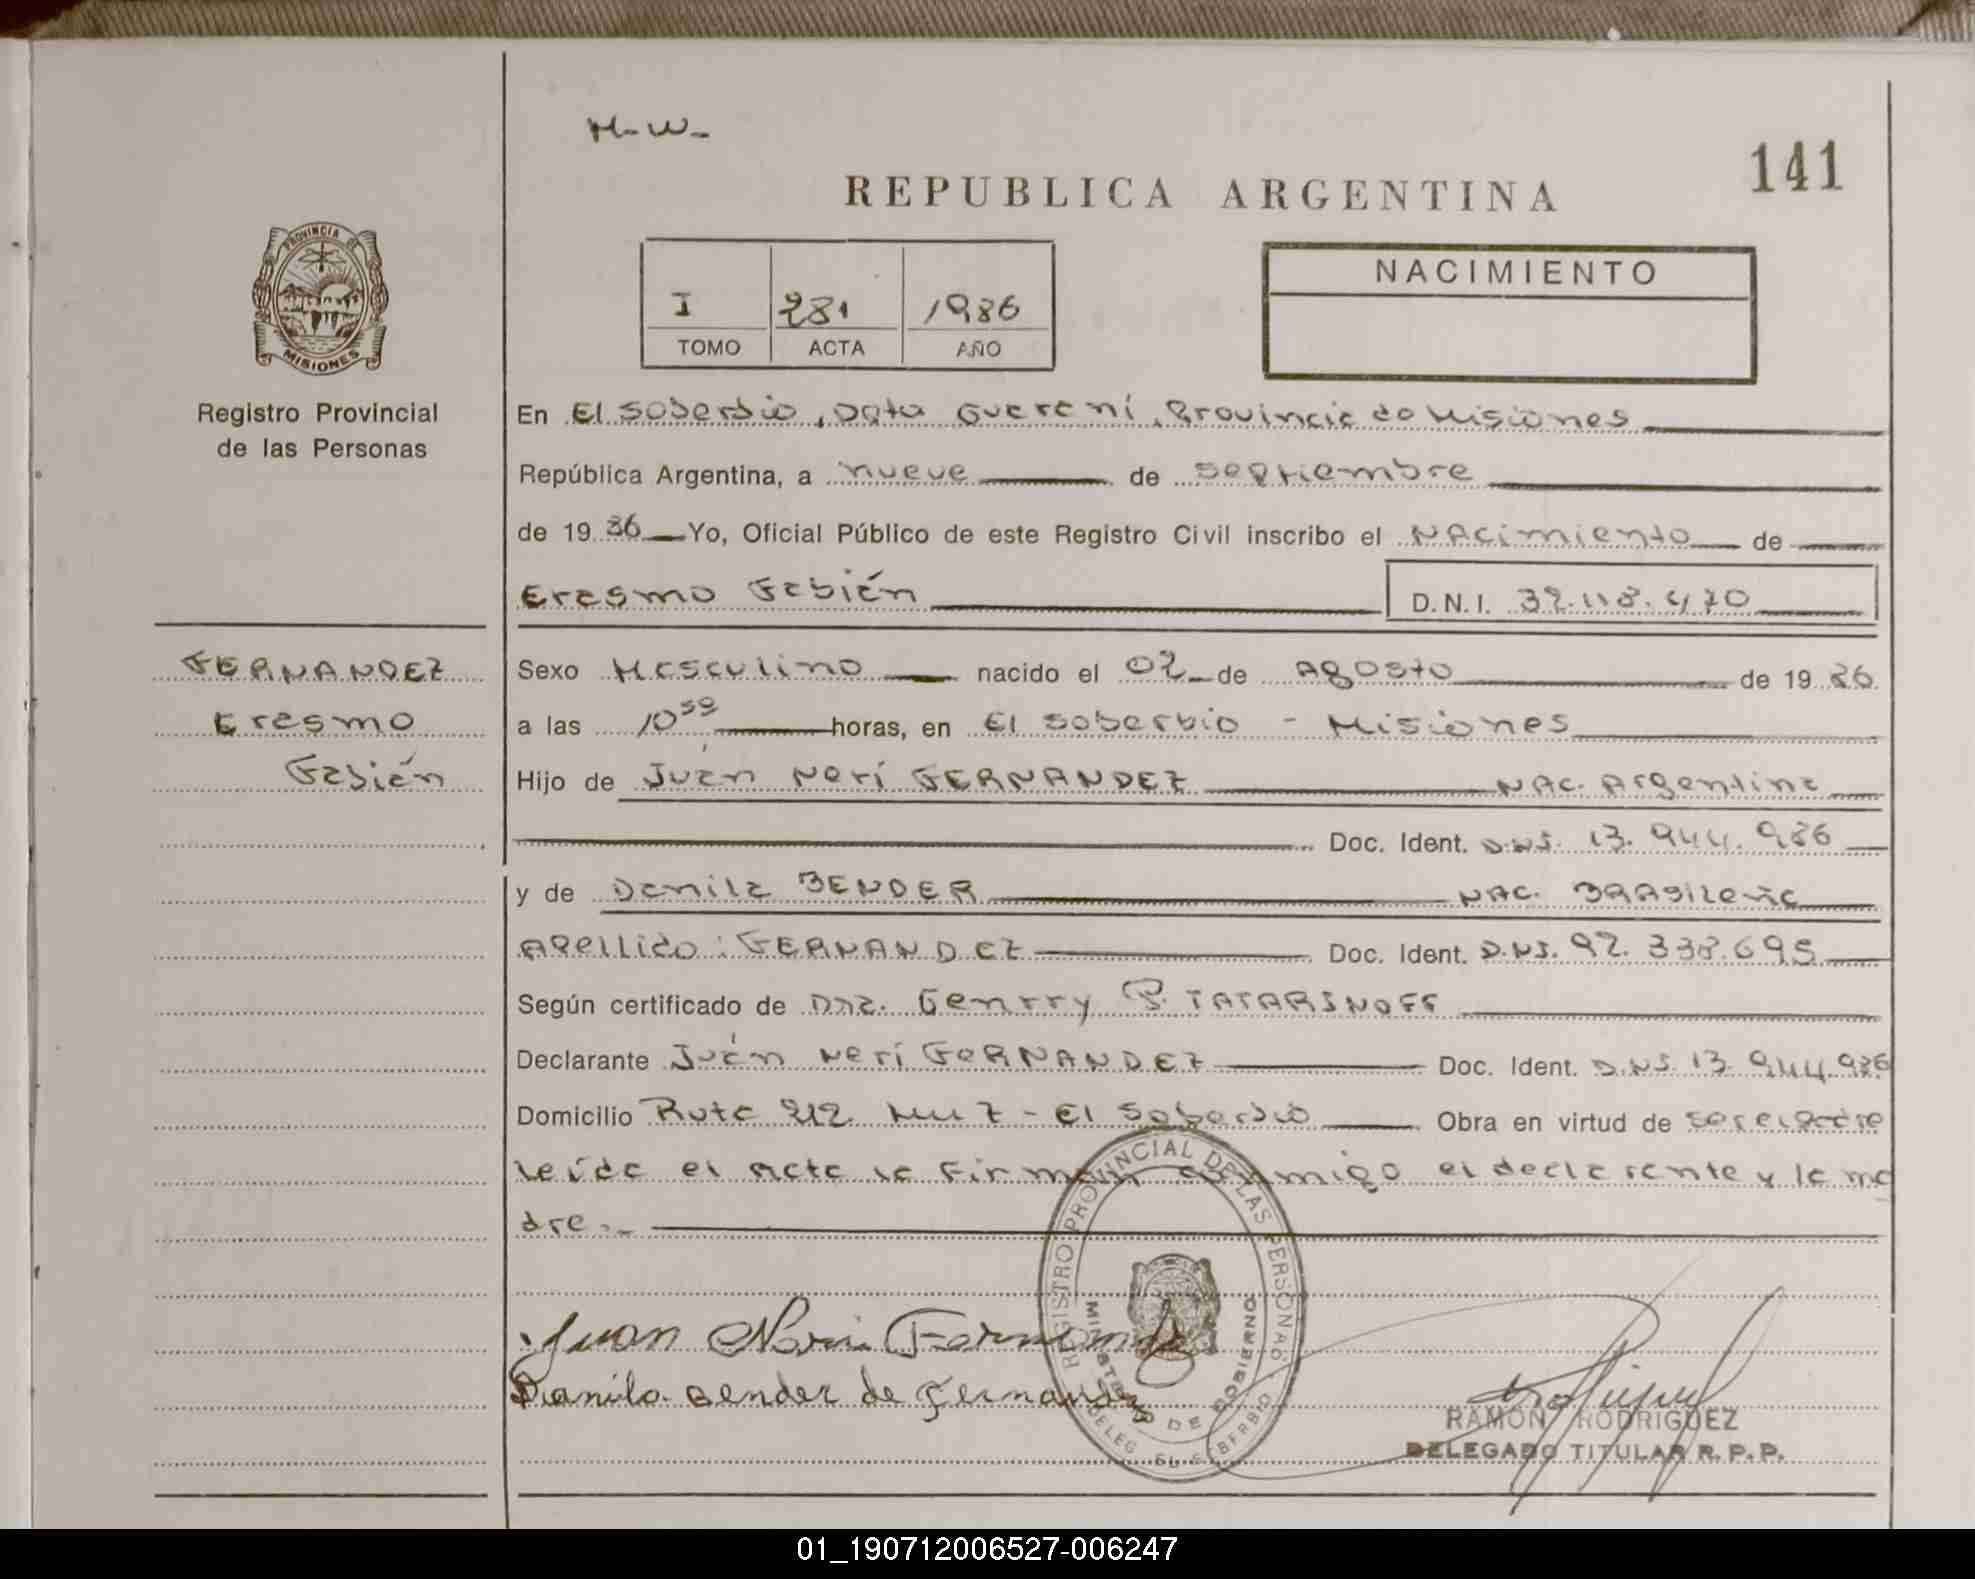 M-W-
141
REPUBLICA ARGENTINA
PROVINCIA DE
MISIONES
Registro Provincial
de las Personas
I 281 1986
TOMO ACTA AÑO
NACIMIENTO
En El Soberbio, Dpto Guaraní, Provincia de Misiones
República Argentina, a nueve de septiembre
de 1986 Yo, Oficial Público de este Registro Civil inscribo el NAcimiento de
Erasmo Fabián D.N.I. 32.118.470
FERNANDEZ
Erasmo
Fabián
Sexo Masculino nacido el 02 de Agosto de 1986
a las 10 59 horas, en El Soberbio - Misiones
Hijo de Juan Neri FERNANDEZ NAC. Argentina
Doc. Ident. D.N.I. 13.944.986
y de Danila BENDER NAC. BRASileña
Apellido: FERNANDEZ Doc. Ident. D.N.I. 92.338.695
Según certificado de Dra. Genrry P. TATARINOFF
Declarante Juán Neri FERNANDEZ Doc. Ident. D.N.I. 13.944.986
Domicilio Ruta 212 - El Soberbio Obra en virtud de ser el padre
leída el Acta la Firman conmigo el declarante y la ma
dre.-
REGISTRO PROVINCIAL DE LAS PERSONAS
MINISTERIO DE GOBIERNO
DELEG. EL SOBERBIO
Juan Neri Fernandez
Danila Bender de Fernandez
RAMON RODRIGUEZ
DELEGADO TITULAR R.P.P.
01_190712006527-006247